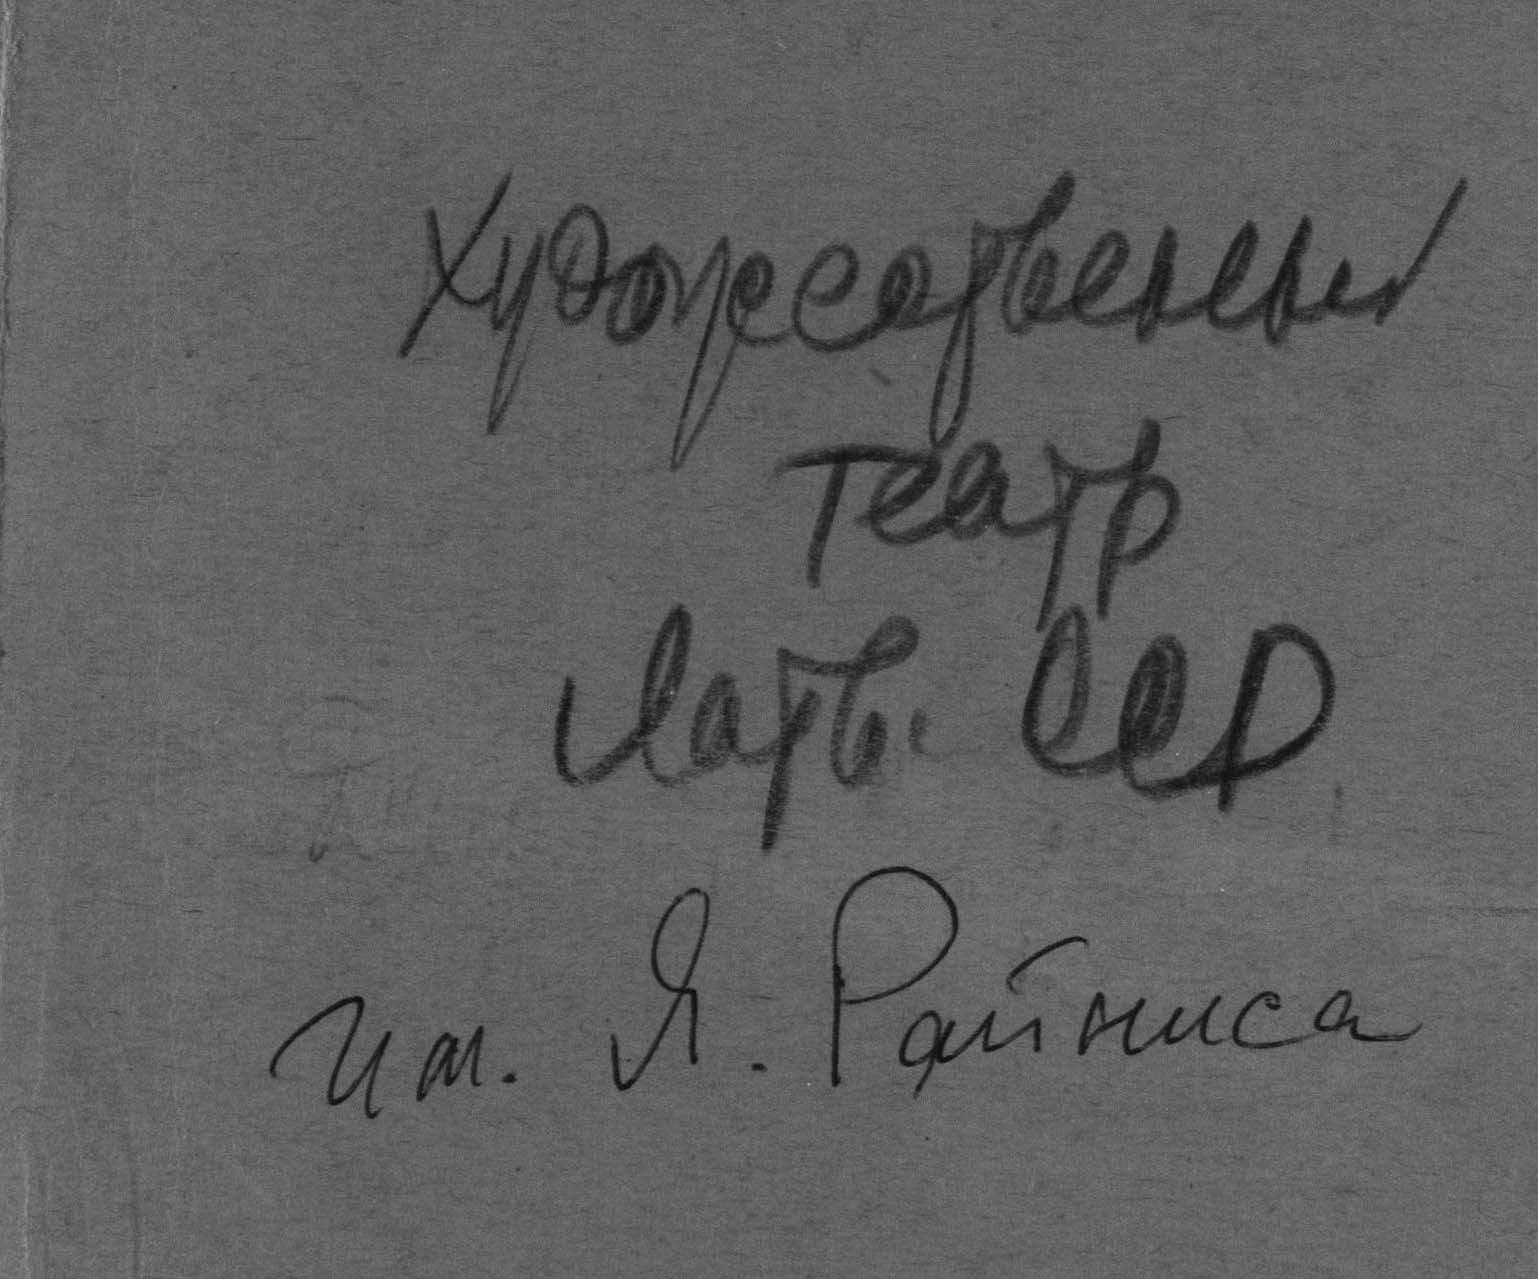 Художественный
театр
Латв. ССР
им. Я. Райниса